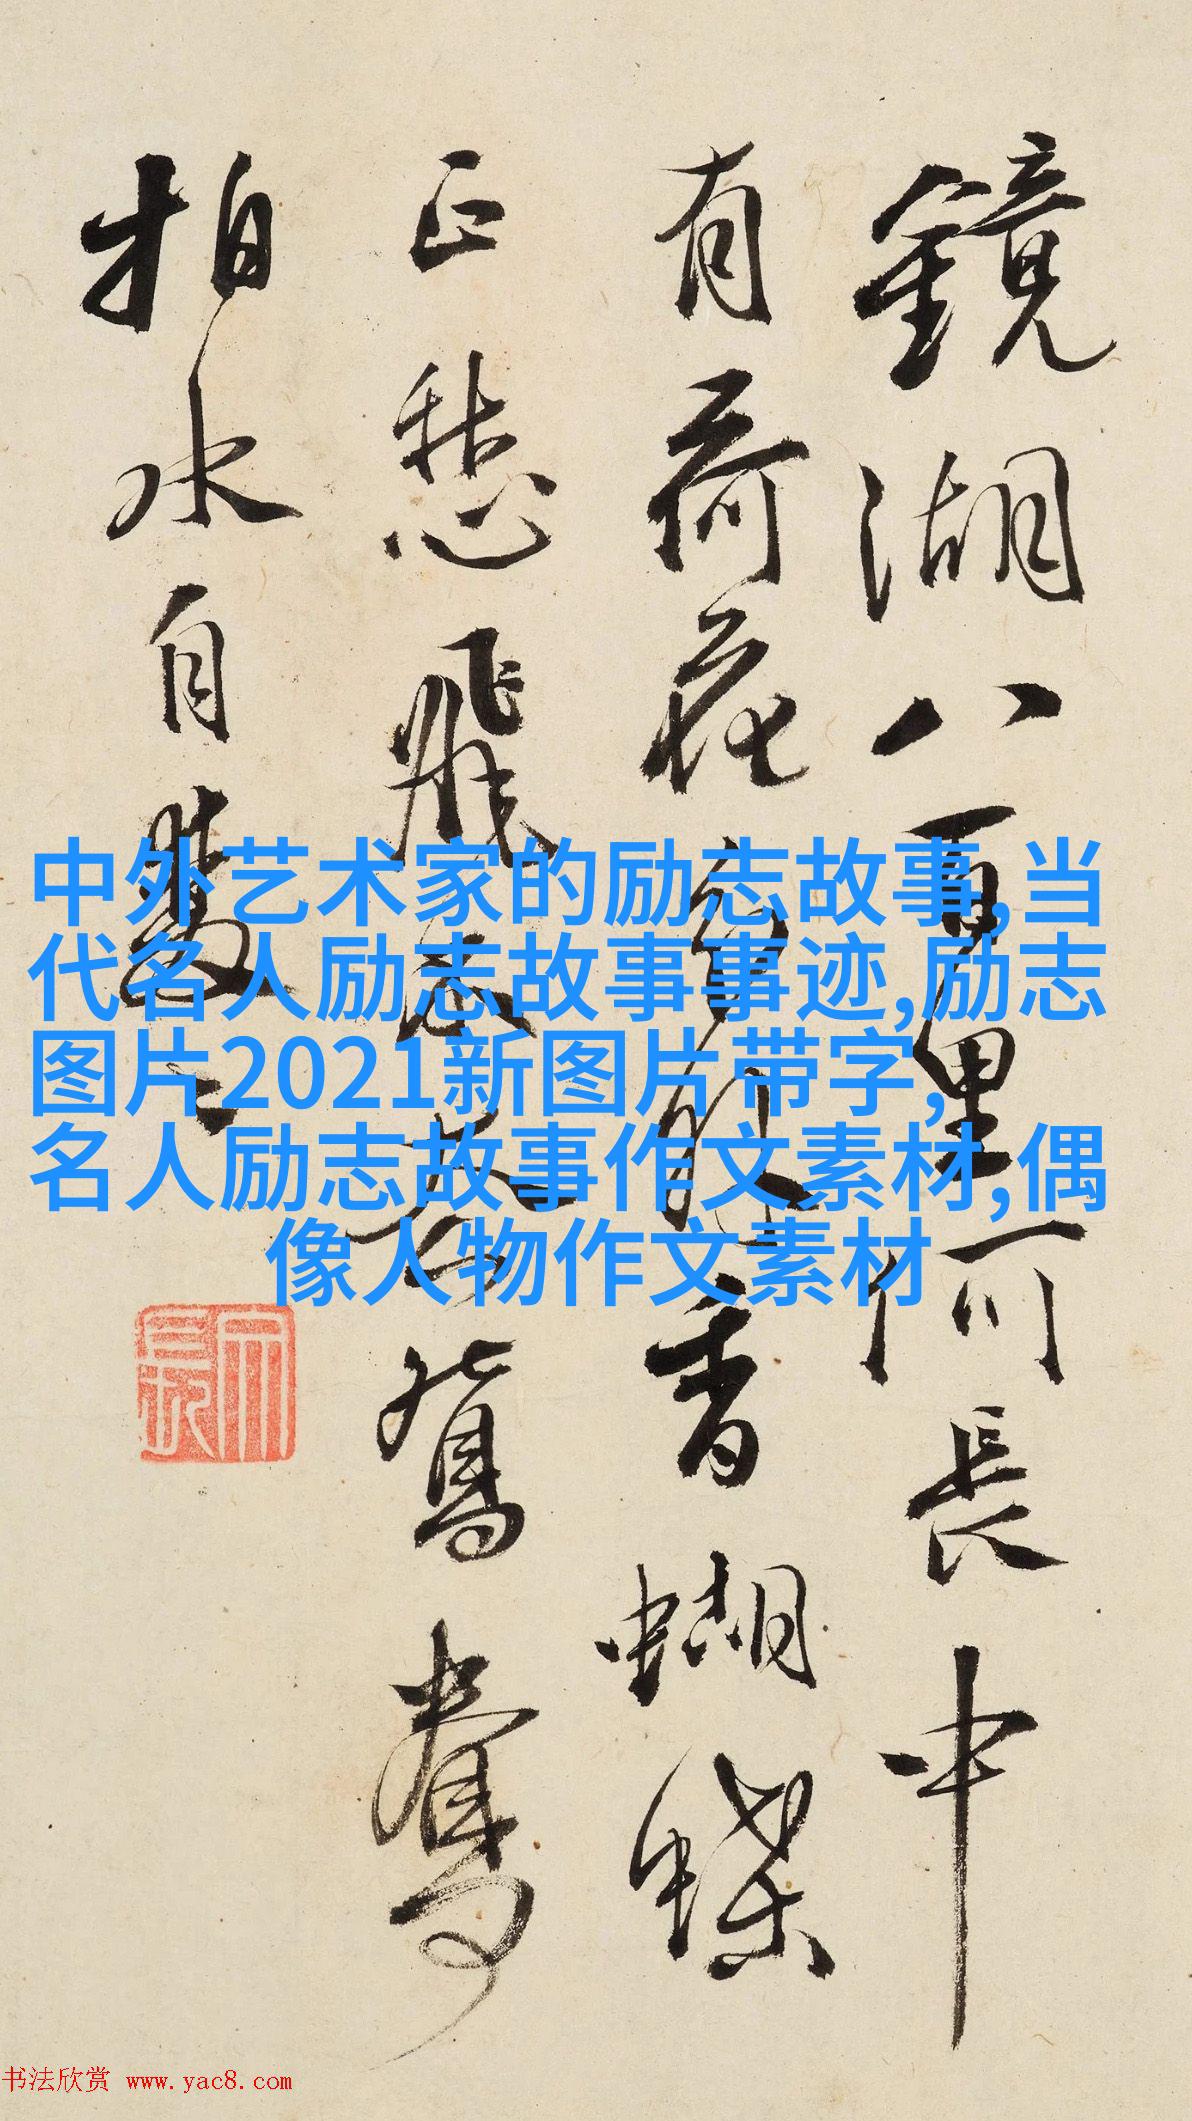 鏡湖八百里何長中
有荷花香蝴蝶
正愁飛不鴛鴦
拍水自雙〻
中外艺术家的励志故事,当
代名人励志故事事迹,励志
图片2021新图片带字,
名人励志故事作文素材,偶
像人物作文素材
书法欣赏 www.yac8.com